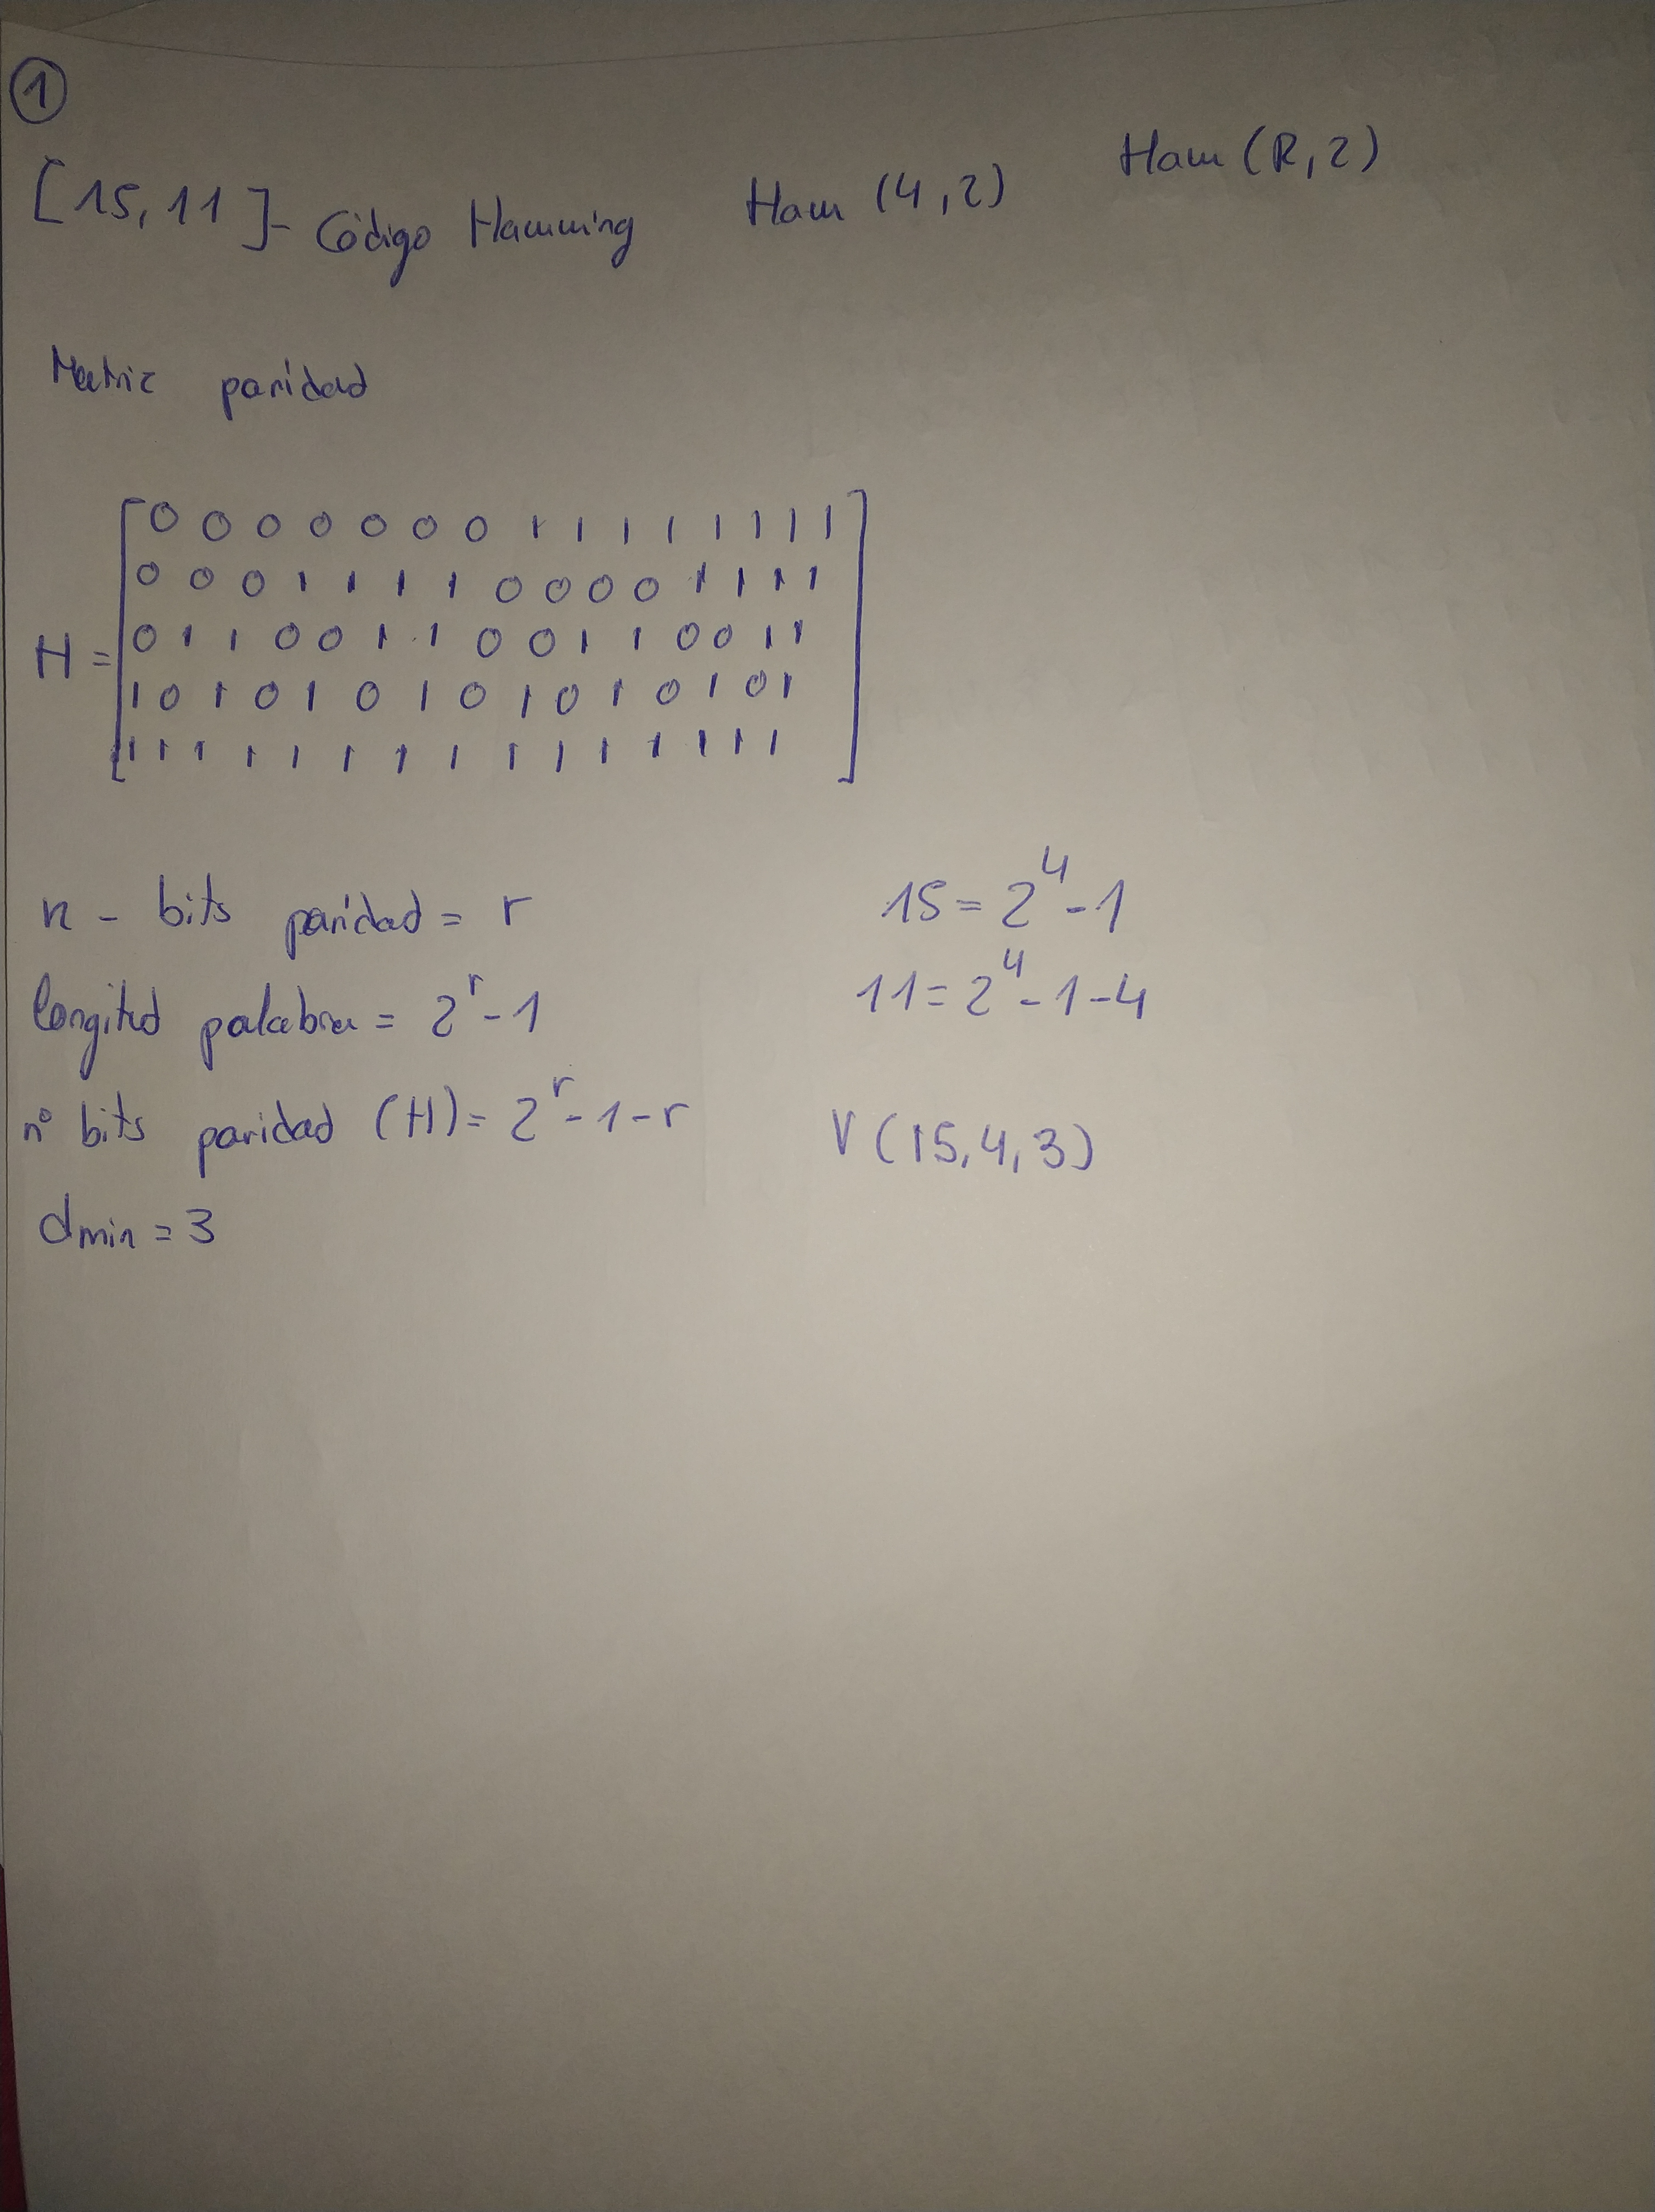 1
[15, 11]- Código Hamming Ham (4,2) Ham (R,2)
Matriz paridad
0 0 0 0 0 0 0 1 1 1 1 1 1 1 1
0 0 0 1 1 1 1 0 0 0 0 1 1 1 1
H = 0 1 1 0 0 1 1 0 0 1 1 0 0 1 1
1 0 1 0 1 0 1 0 1 0 1 0 1 0 1
1 1 1 1 1 1 1 1 1 1 1 1 1 1 1
n - bits paridad = r 15 = 2^4 - 1
longitud palabra = 2^r - 1 11 = 2^4 - 1 - 4
nº bits paridad (H) = 2^r - 1 - r V (15, 4, 3)
dmin = 3